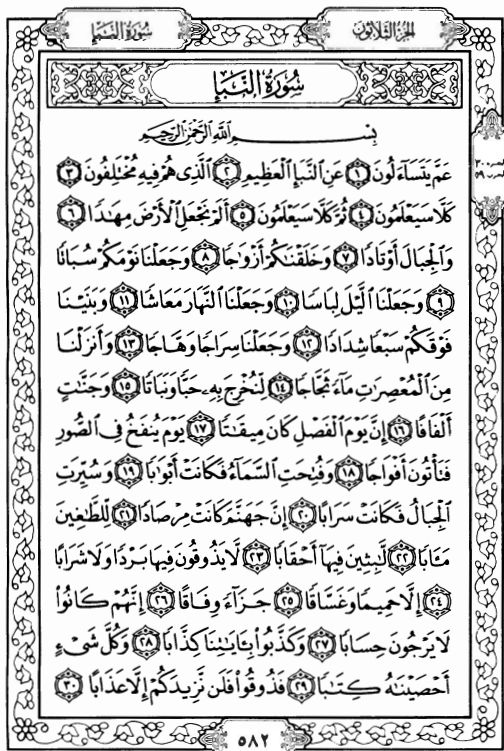 الجزء الثلاثون
سورة النبإ
سُورَةُ النَّبَإِ
بِسْمِ اللَّهِ الرَّحْمَٰنِ الرَّحِيمِ
عَمَّ يَتَسَاءَلُونَ ١ عَنِ النَّبَإِ الْعَظِيمِ ٢ الَّذِى هُمْ فِيهِ مُخْتَلِفُونَ ٣
كَلَّا سَيَعْلَمُونَ ٤ ثُمَّ كَلَّا سَيَعْلَمُونَ ٥ أَلَمْ نَجْعَلِ الْأَرْضَ مِهَٰدًا ٦
وَالْجِبَالَ أَوْتَادًا ٧ وَخَلَقْنَٰكُمْ أَزْوَٰجًا ٨ وَجَعَلْنَا نَوْمَكُمْ سُبَاتًا
٩ وَجَعَلْنَا الَّيْلَ لِبَاسًا ١٠ وَجَعَلْنَا النَّهَارَ مَعَاشًا ١١ وَبَنَيْنَا
فَوْقَكُمْ سَبْعًا شِدَادًا ١٢ وَجَعَلْنَا سِرَاجًا وَهَّاجًا ١٣ وَأَنزَلْنَا
مِنَ الْمُعْصِرَٰتِ مَآءً ثَجَّاجًا ١٤ لِّنُخْرِجَ بِهِۦ حَبًّا وَنَبَاتًا ١٥ وَجَنَّٰتٍ
أَلْفَافًا ١٦ إِنَّ يَوْمَ الْفَصْلِ كَانَ مِيقَٰتًا ١٧ يَوْمَ يُنفَخُ فِى الصُّورِ
فَتَأْتُونَ أَفْوَاجًا ١٨ وَفُتِحَتِ السَّمَآءُ فَكَانَتْ أَبْوَٰبًا ١٩ وَسُيِّرَتِ
الْجِبَالُ فَكَانَتْ سَرَابًا ٢٠ إِنَّ جَهَنَّمَ كَانَتْ مِرْصَادًا ٢١ لِّلطَّٰغِينَ
مَـَٔابًا ٢٢ لَّٰبِثِينَ فِيهَآ أَحْقَابًا ٢٣ لَّا يَذُوقُونَ فِيهَا بَرْدًا وَلَا شَرَابًا
٢٤ إِلَّا حَمِيمًا وَغَسَّاقًا ٢٥ جَزَآءً وِفَاقًا ٢٦ إِنَّهُمْ كَانُوا۟
لَا يَرْجُونَ حِسَابًا ٢٧ وَكَذَّبُوا۟ بِـَٔايَٰتِنَا كِذَّابًا ٢٨ وَكُلَّ شَىْءٍ
أَحْصَيْنَٰهُ كِتَٰبًا ٢٩ فَذُوقُوا۟ فَلَن نَّزِيدَكُمْ إِلَّا عَذَابًا ٣٠
٥٨٢